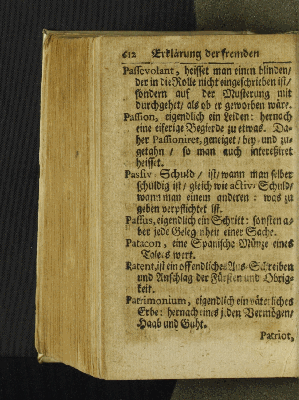 612 Erklärung der fremden
Passevolant, heisset man einen blinden/
der in die Rolle nicht eingeschrieben ist/
sondern auf der Musterung mit
durchgehet/ als ob er geworben wäre.
Passion, eigendlich ein Leiden: hernach
eine eiferige Begierde zu etwas. Da-
her Passioniret, geneiget/ bey- und zu-
getahn/ so man auch interessiret
heisset.
Passiv Schuld/ ist/ wann man selber
schuldig ist/ gleich wie activ Schuld/
wann man einem anderen: was zu
geben verpflichtet ist.
Passus, eigendlich ein Schritt: sonsten a-
ber jede Gelegenheit einer Sache.
Patacon, eine Spanische Müntze eines
Talers wert.
Patent, ist ein offendliches Aus-Schreiben
und Anschlag der Fürsten und Obrig-
keit.
Patrimonium, eigendlich ein väterliches
Erbe: hernach eines jeden Vermögen/
Haab und Guht.
Patriot,